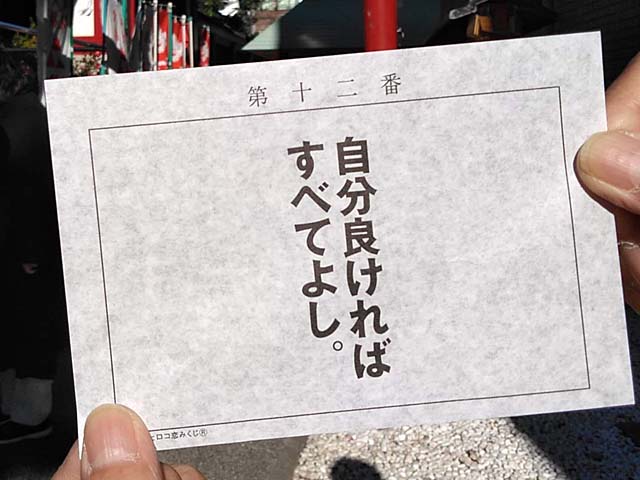 第十二番
自分良ければ
すべてよし。
ヒロコ恋みくじ®